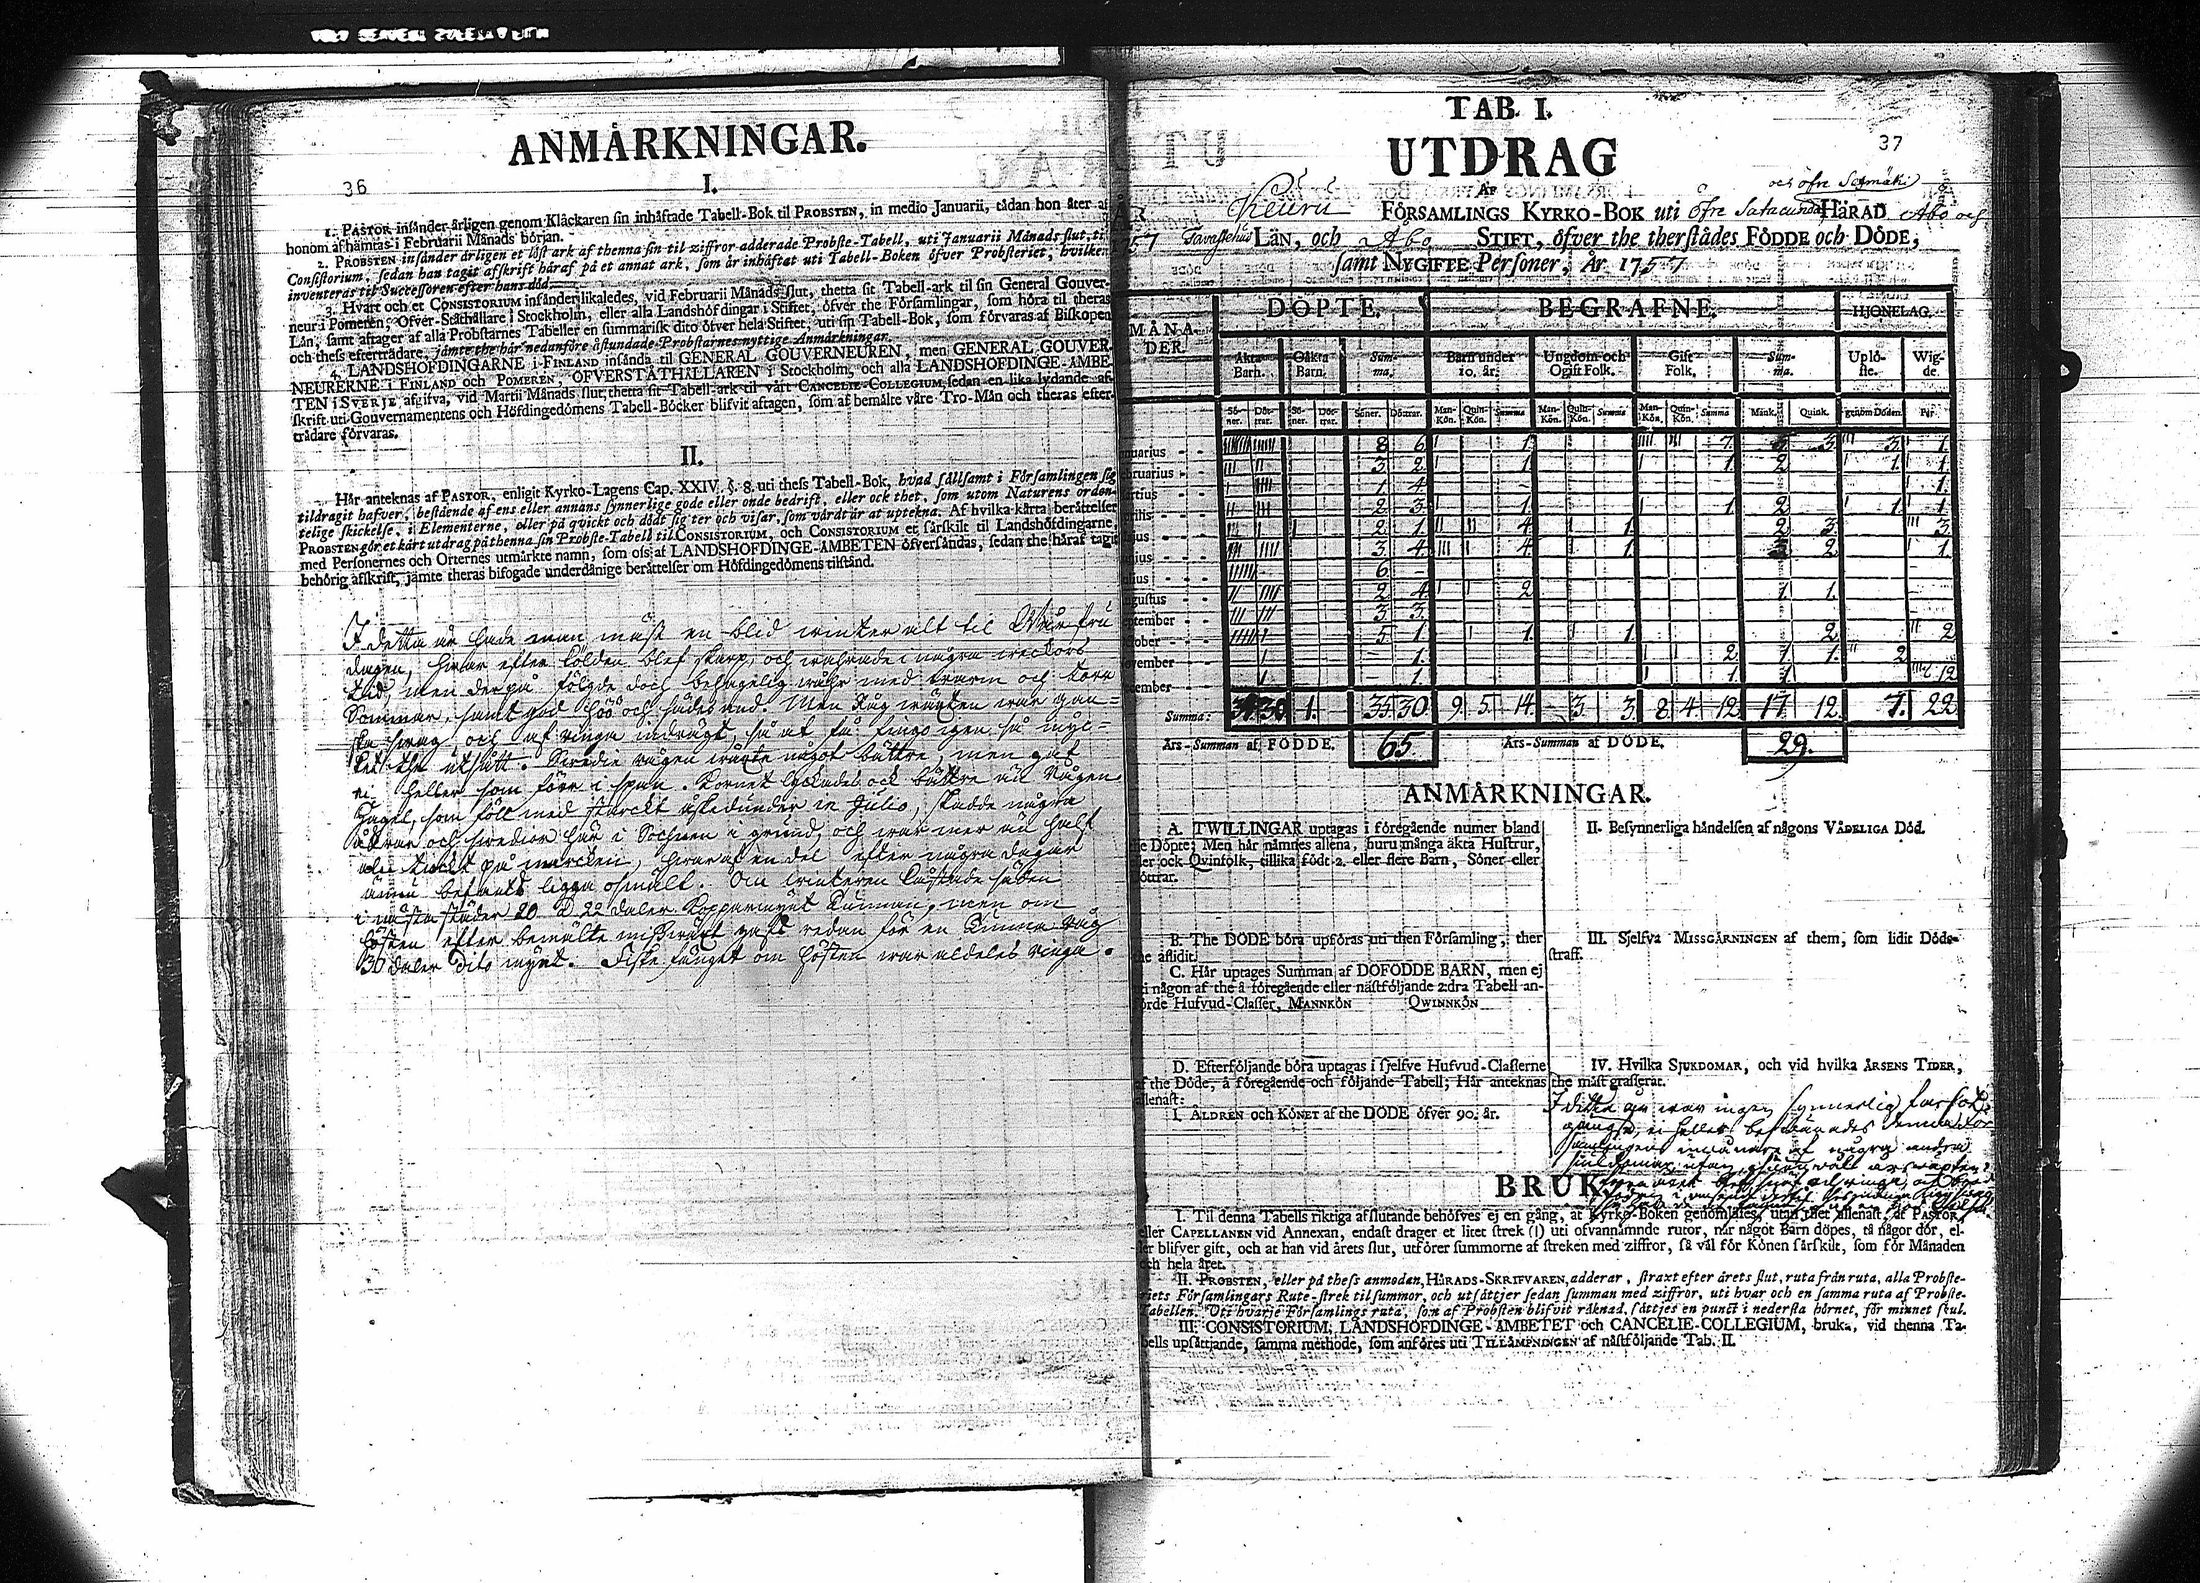 ANMÄRKNINGAR.
36
I.
1. PASTOR insänder årligen genom Klåckaren sin inhäftade Tabell-Bok til PROBSTEN, in medio Januarii, tådan hon åter af
honom afhämtas i Februarii Månads början.
2. PROBSTEN insänder årligen et löst ark af thenna sin til ziffror adderade Probste-Tabell, uti Januarii Månads slut, til
Consistorium, sedan han tagit afskrift häraf på et annat ark, som är inhäftat uti Tabell-Boken öfver Probsteriet, hvilken
inventeras til Successoren efter hans död.
3. Hvart och et CONSISTORIUM insänder likaledes, vid Februarii Månads slut, thetta sit Tabell-ark til sin General Gouver-
neur i Pomeren, Öfver-Ståthållare i Stockholm, eller alla Landshöfdingar i Stiftet, öfver the Församlingar, som höra til theras
Län, samt aftager af alla Probstarnes Tabeller en summarisk dito öfver hela Stiftet, uti sin Tabell-Bok, som förvaras af Biskopen
och thess efterträdare, jämte the här nedanföre åstundade Probstarnes nyttige Anmärkningar.
4. LANDSHÖFDINGARNE i FINLAND insända til GENERAL GOUVERNEUREN, men GENERAL GOUVER-
NEURERNE i FINLAND och POMEREN, ÖFVERSTÅTHÅLLAREN i Stockholm, och alla LANDSHÖFDINGE-ÄMBE-
TEN i SVERJE afgifva, vid Martii Månads slut, thetta sit Tabell-ark til vårt CANCELIE-COLLEGIUM, sedan en lika lydande af-
skrift uti Gouvernamentens och Höfdingedömens Tabell-Böcker blifvit aftagen, som af bemälte våre Tro-Män och theras efter-
trädare förvaras.
II.
Här anteknas af PASTOR, enligit Kyrko-Lagens Cap. XXIV. §. 8. uti thess Tabell-Bok, hvad sällsamt i Församlingen sig
tildragit hafver, bestående af ens eller annans synnerlige gode eller onde bedrift, eller ock thet, som utom Naturens orden-
telige skickelse, i Elementerne, eller på qvickt och dödt sig ter och visar, som värdt är at uptekna. Af hvilka kårta berättelser
PROBSTEN gör et kårt utdrag på thenna sin Probste-Tabell til CONSISTORIUM, och CONSISTORIUM et särskilt til Landshöfdingarne,
med Personernes och Orternes utmärkte namn, som oss af LANDSHÖFDINGE-ÄMBETEN öfversändas, sedan the häraf tagit
behörig afskrift, jämte theras bifogade underdånige berättelser om Höfdingedömens tilstånd.
I detta år hade man mäst en blid winter alt til Wårfru
dagen, hwar efter kölden blef skarp, och warade i några weckors
tid, men derpå fölgde doch behagelig wåhr med warm och torr
Sommar, samt god höö och sädes and. Men Råg wäxten war gan-
ska swag och af ringa indrägt, så at få fingo igen så myc-
ket the utsått. Swedie rågen wäxte något bättre, men gaf
ei heller som förr i span. Kornet lyckades ock bättre än Rågen.
Hagel, som föll med starckt åskedunder in Julio, skadde några
åkrar och swedior här i Socknen i grund, och war mer än half
aln tiockt på marcken, hwaraf en del efter några dagar
ännu befants ligga osmält. Om winteren kåstade säden
i nästa städer 20 à 22 daler Kopparmynt tunnan, men om
hösten efter bemälte misswäxt gafs redan för en tunna råg
30 daler dito mynt. Fiske fånget om hösten war aldeles ringa.
TAB. I.
37
UTDRAG
AF
och öfre Satmäki
Keuru FÖRSAMLINGS KYRKO-BOK uti öfre Satacunda HÄRAD Åbo och
Tavastehus LÄN, och Åbo STIFT, öfver the therstädes FÖDDE och DÖDE,
samt NYGIFTE Personer, År 1757
MÅNA-
DER
DÖPTE. BEGRAFNE. HJONELAG.
Äkta Barn. Oäkta Barn. Summa. Barn under 10. år. Ungdom och Ogift Folk. Gift Folk. Summa. Uplöste. Wigde.
Söner. Döttrar. Söner. Döttrar. Söner. Döttrar. Man-Kön. Quin-Kön. Summa Man-Kön. Quin-Kön. Summa Man-Kön. Quin-Kön. Summa Mank. Quink. genom Döden. Par.
nuarius - - 8 6 1. 7. 5 3 3. 1.
bruarius - - 3 2 1 1 2 1. 1.
artius 1 4 1.
prilis 2 3 1 1 2 1 1
ajus 2 1 4 1 2 3 3
unius 3 4 4 1 3 2 1
ulius 6 -
ugustus 2 4 2 1 1
eptember 3 3
ctober 5 1 1 1 2 2
ovember - 1. 2 1 1. 2
cember - 1 1 1 12
Summa: 34 30 1. 35 30. 9. 5. 14 3. 3. 8. 4. 12 17 12. 7. 22
Års-Summan af FÖDDE. 65. Års-Summan af DÖDE. 29.
ANMÄRKNINGAR.
A. TWILLINGAR uptagas i föregående numer bland
the Döpte; Men här nämnes allena, huru många äkta Hustrur,
ler ock Qvinfolk, tillika födt 2. eller flere Barn, Söner eller
öttrar.
B. The DÖDE böra upföras uti then Församling, ther
the aflidit.
C. Här uptages Summan af DÖFÖDDE BARN, men ej
ti någon af the å föregående eller nästföljande 2:dra Tabell an-
förde Hufvud-Classer, MANNKÖN QWINNKÖN
D. Efterföljande böra uptagas i sjelfve Hufvud-Classerne
af the Döde, å föregående och följande Tabell; Här anteknas
allenast:
I. ÅLDREN och KÖNET af the DÖDE öfver 90. år.
II. Besynnerliga händelsen af någons VÅDELIGA Död.
III. Sjelfva MISSGÄRNINGEN af them, som lidit Döds-
straff.
IV. Hvilka SJUKDOMAR, och vid hvilka ÅRSENS TIDER,
the mäst grasserat.
I detta år war ingen synnerlig farsot
gångse, ei heller beswärades denna för
samlingens inwånare af några andra
BRUK.
I. Til denna Tabells riktiga afslutande behöfves ej en gång, at Kyrko-Boken genomläses, utan thet allenast, at PASTOR,
eller CAPELLANEN vid Annexan, endast drager et litet strek (|) uti ofvannämnde rutor, när något Barn döpes, tå någor dör, el-
ler blifver gift, och at han vid årets slut, utförer summorne af streken med ziffror, så väl för Könen särskilt, som för Månaden
och hela året.
II. PROBSTEN, eller på thess anmodan, HÄRADS-SKRIFVAREN, adderar, straxt efter årets slut, ruta från ruta, alla Probste-
riets Församlingars Rute-strek til summor, och utsättjer sedan summan med ziffror, uti hvar och en samma ruta af Probste-
Tabellen. Uti hvarje Församlings ruta, som af Probsten blifvit räknad, sättjes en punct i nedersta hörnet, för minnet skul.
III. CONSISTORIUM, LANDSHÖFDINGE-ÄMBETET och CANCELIE-COLLEGIUM, bruka, vid thenna Ta-
bells upsättjande, samma methode, som anföres uti TILLÄMPNINGEN af nästföljande Tab. II.